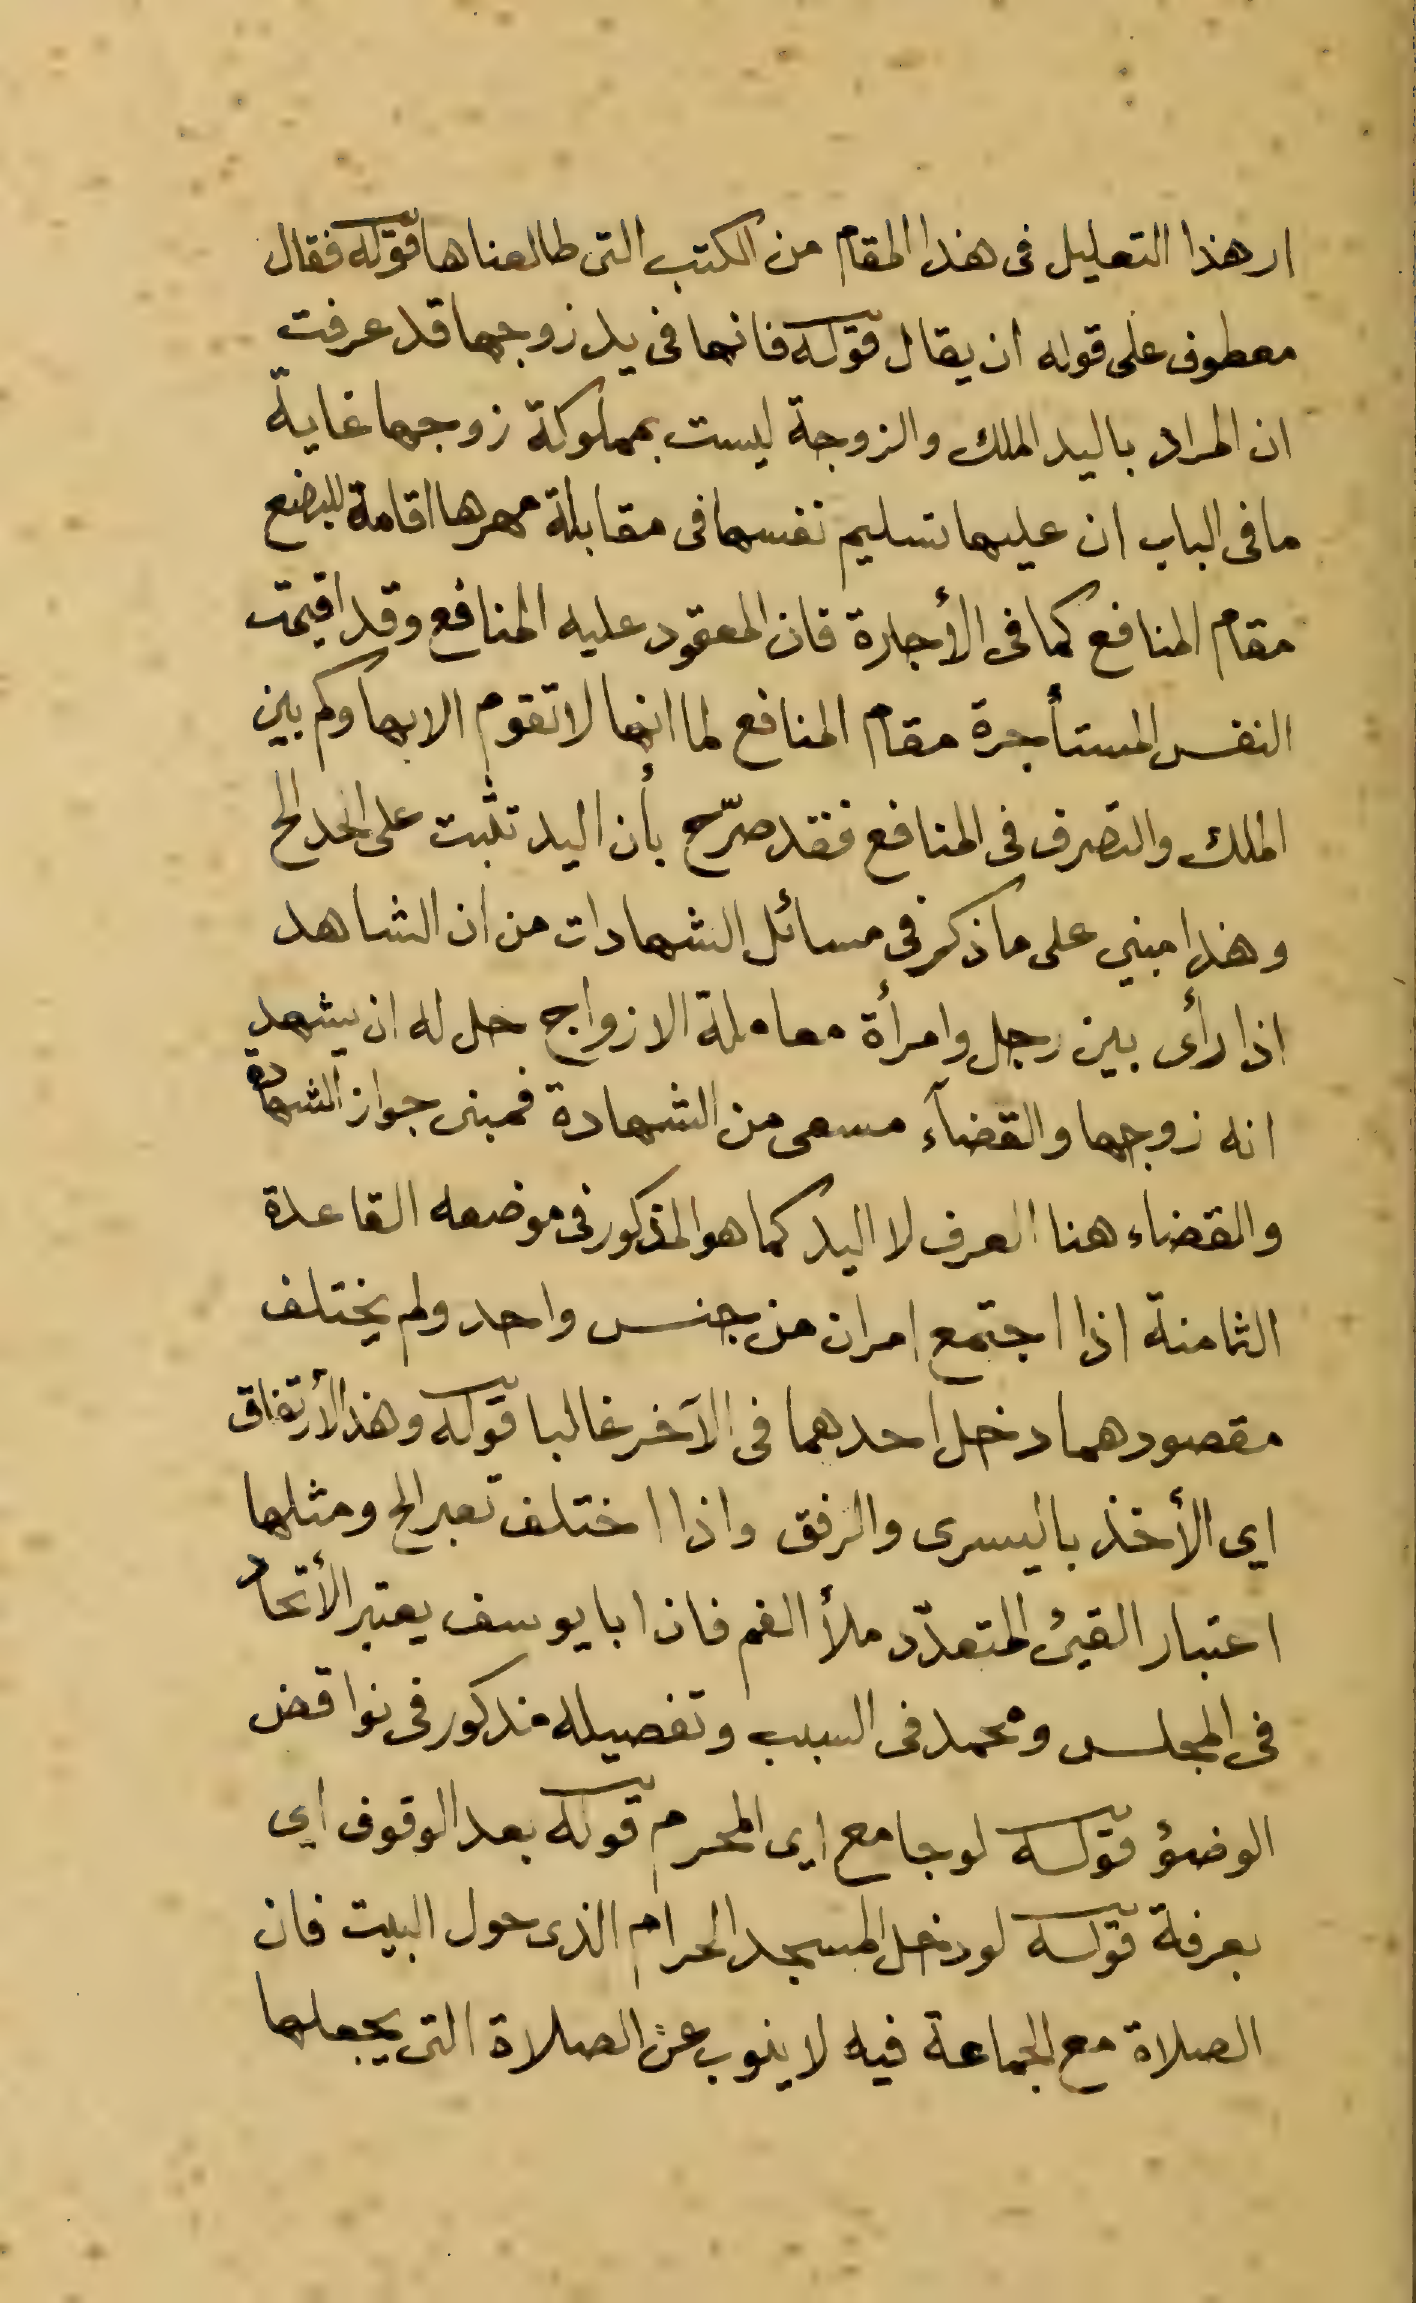 ار هذا التعليل فى هذا المقام من الكتب التى طالعناها قوله فقال
معطوف على قوله ان يقال قوله فانها فى يد زوجها قد عرفت
ان المراد باليد الملك والزوجة ليست بمملوكة زوجها غاية
ما فى الباب ان عليها تسليم نفسها فى مقابلة مهرها اقامة للبضع
مقام المنافع كما فى الأجارة فان المعقود عليه المنافع وقد اقيمت
النفس المستأجرة مقام المنافع لما انها لا تقوم الا بها وكم بين
الملك والتصرف فى المنافع فقد صرّح بأن اليد تثبت على الحد الخ
وهذا مبني على ما ذكر فى مسائل الشهادات من ان الشاهد
اذا رأى بين رجل وامرأة معاملة الازواج حل له ان يشهد
انه زوجها والقضآء مسمى من الشهادة فمبنى جواز الشهادة
والقضاء هنا العرف لا اليد كما هو المذكور فى موضعه القاعدة
الثامنة اذا اجتمع امران من جنس واحد ولم يختلف
مقصودهما دخل احدهما فى الآخر غالبا قوله وهذا الأرتفاق
اى الأخذ باليسرى والرفق واذا اختلف تعبر الخ ومثلها
اعتبار القيئ المتعدّد ملأ الفم فان ابا يوسف يعتبر الأتحاد
فى المجلس ومحمد فى السبب وتفصيله مذكور فى نواقض
الوضؤ قوله لو جامع اى المحرم قوله بعد الوقوف اى
بعرفة قوله لو دخل المسجد الحرام الذى حول البيت فان
الصلاة مع الجماعة فيه لا ينوب عن الصلاة التى يجعلها